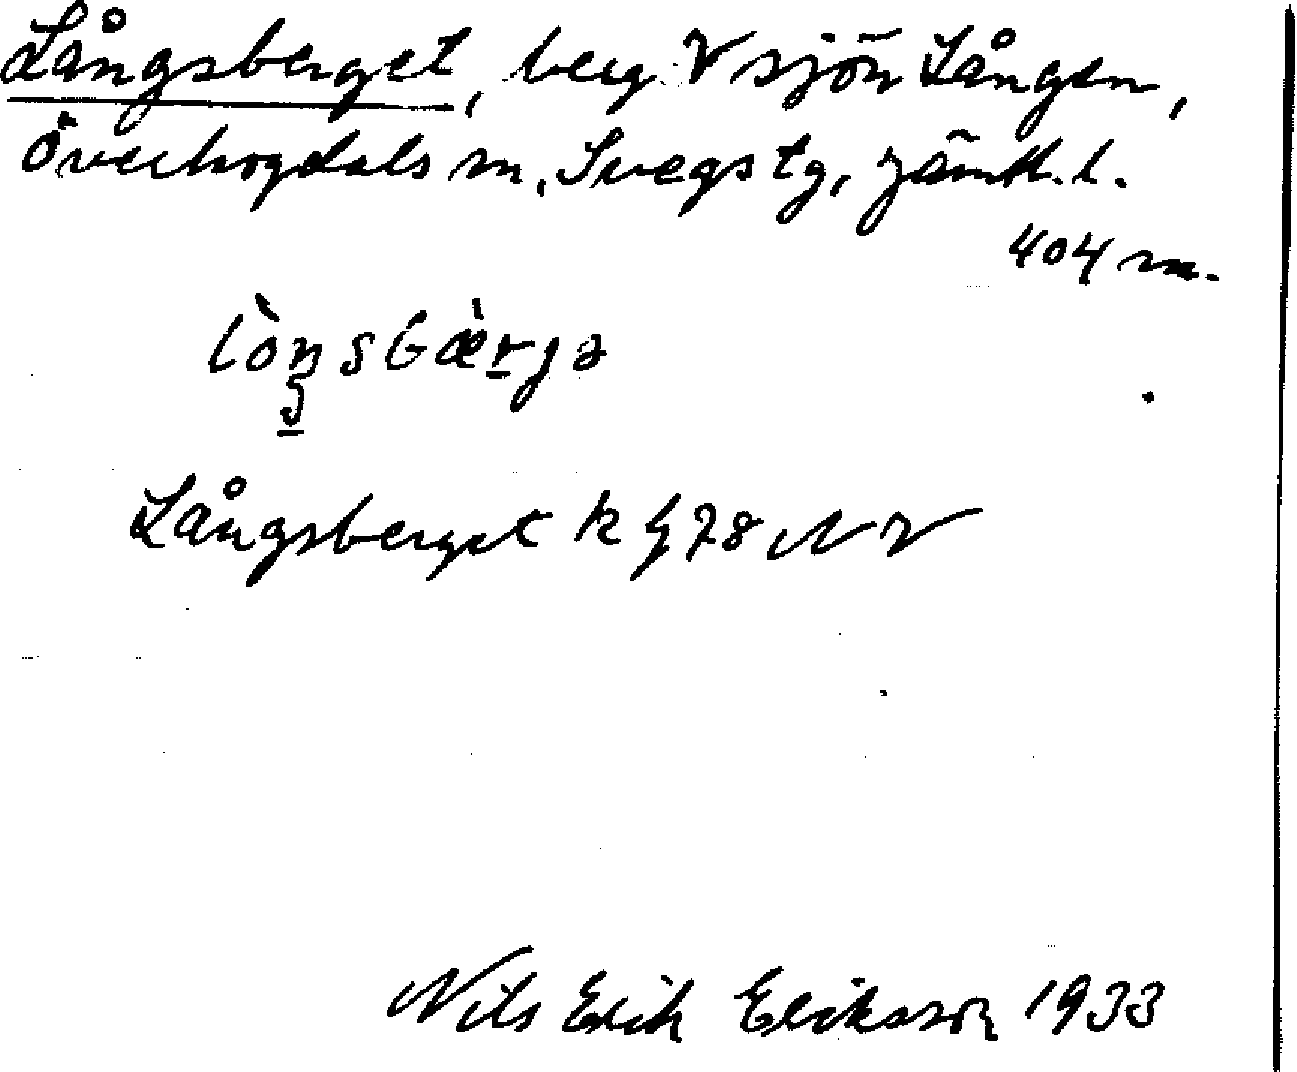 Långsberget, berg V sjön Lången,
Överhogdals sn, Svegs tg, Jämtl. l.
404 m.
lò̀ŋsbæ̀rjə
Långsberget k G 78 NV
Nils Erik Eriksson 1933